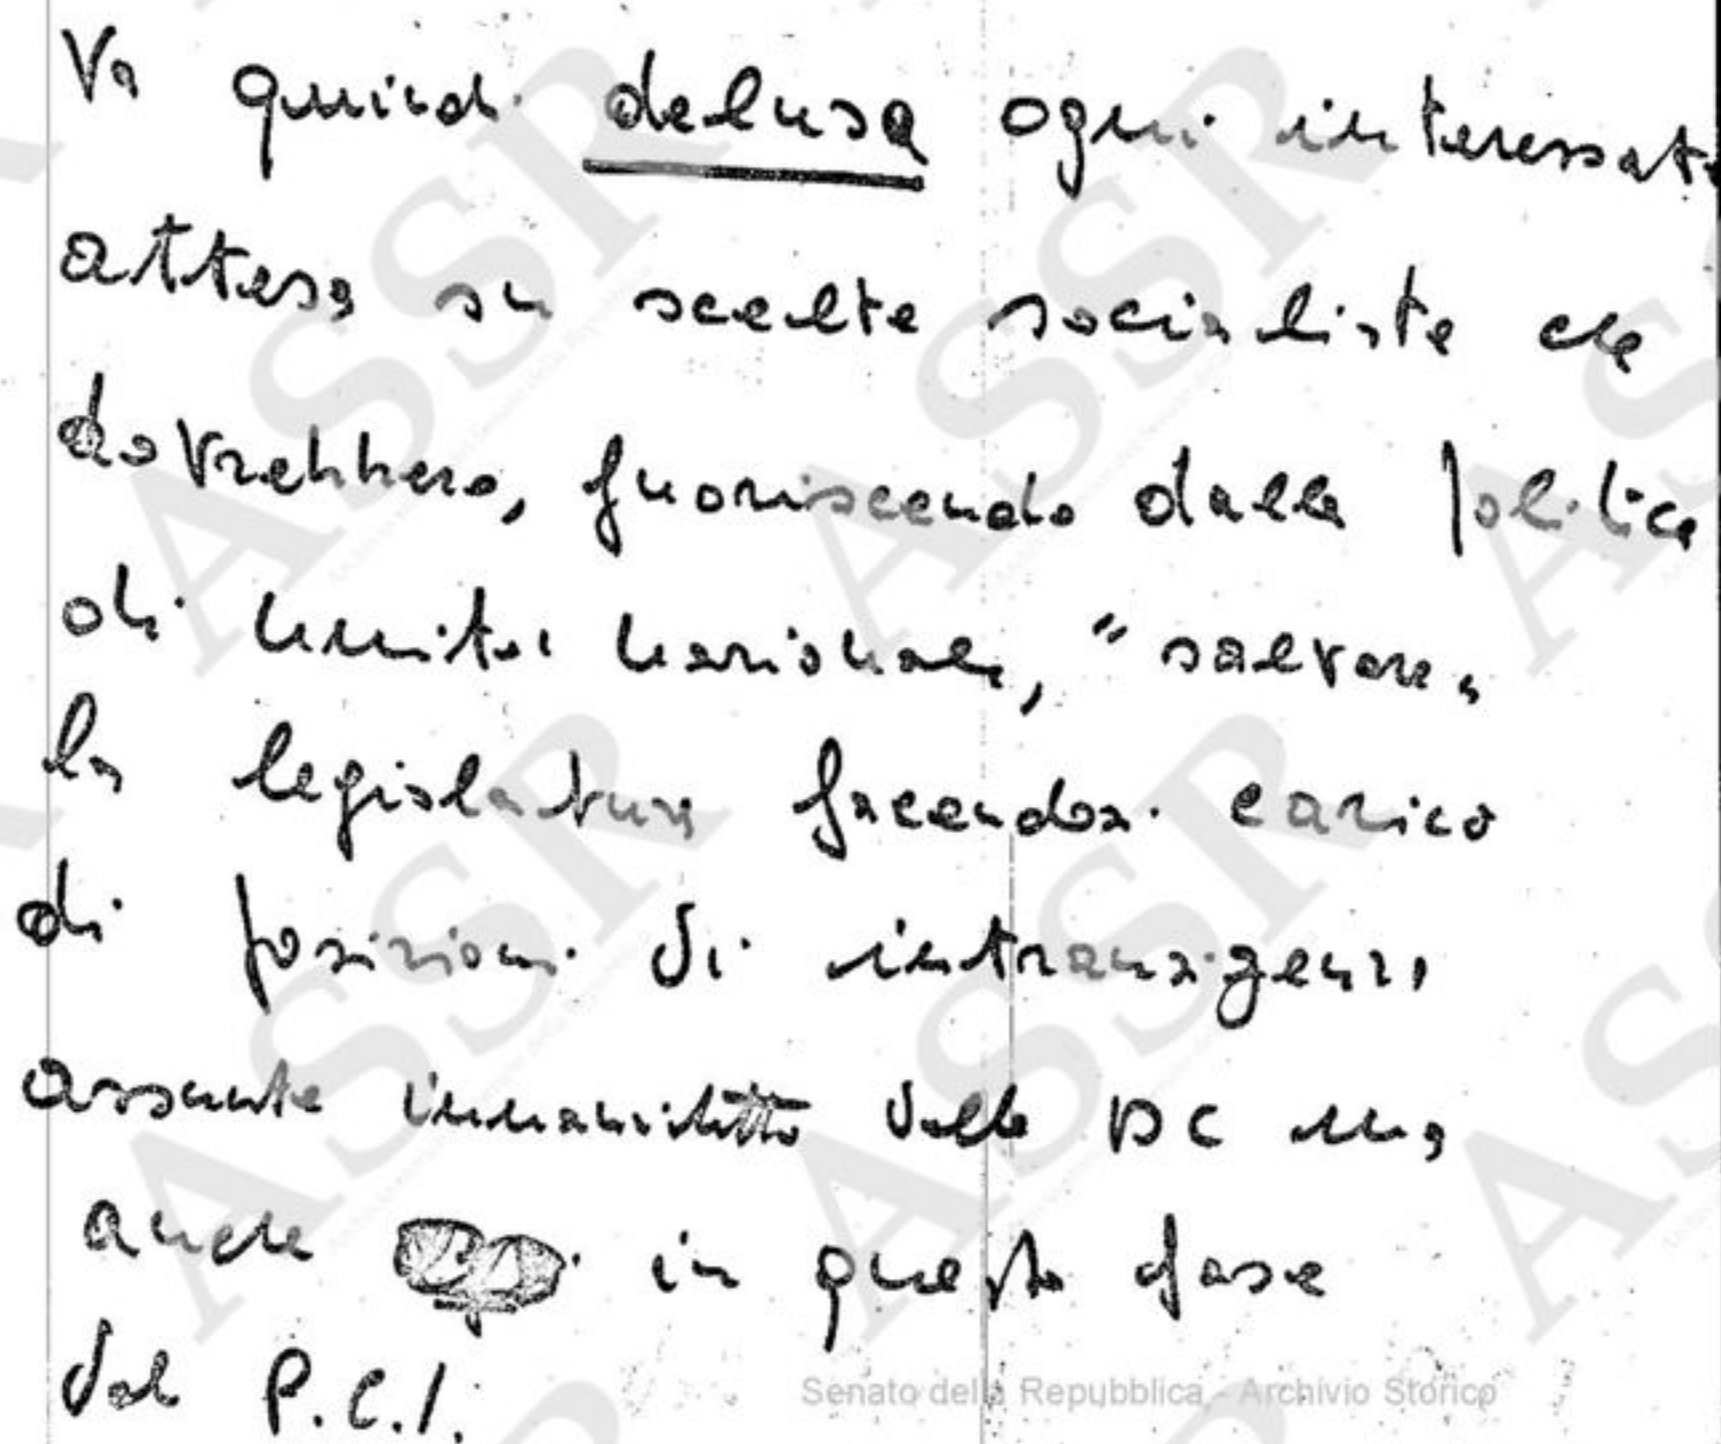 Va quindi delusa ogni interessata
attesa su scelte socialiste che
dovrebbero, fuoriscendo dalla politica
di unità nazionale, "salvare"
la legislatura facendosi carico
di posizioni di intransigenza
assunte innanzitutto dalla DC ma
anche in questa fase
dal P.C.I.
Senato della Repubblica - Archivio Storico
ASSR